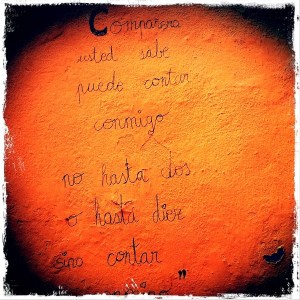 Compañera
usted sabe
puede contar
conmigo
no hasta dos
o hasta diez
sino contar
conmigo"